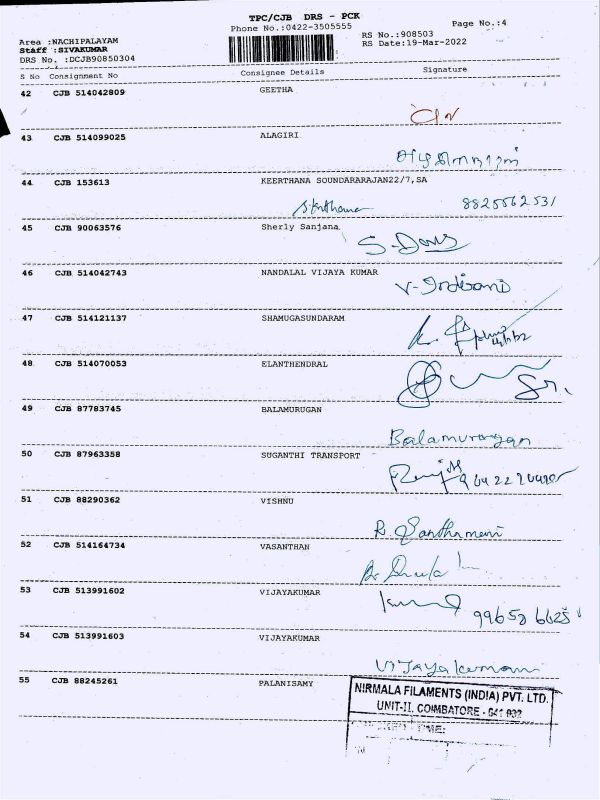 TPC/CJB DRS - PCK
Phone No.:0422-3505555
Page No.:4
Area :NACHIPALAYAM
RS No.:908503
Staff :SIVAKUMAR
RS Date:19-Mar-2022
DRS No. :DCJB90850304
S No Consignment No Consignee Details Signature
42 CJB 514042809 GEETHA
43 CJB 514099025 ALAGIRI
44 CJB 153613 KEERTHANA SOUNDARARAJAN22/7,SA
8825562531
45 CJB 90063576 Sherly Sanjana
46 CJB 514042743 NANDALAL VIJAYA KUMAR
47 CJB 514121137 SHAMUGASUNDARAM
48 CJB 514070053 ELANTHENDRAL
49 CJB 87783745 BALAMURUGAN
Balamurugan
50 CJB 87963358 SUGANTHI TRANSPORT
51 CJB 88290362 VISHNU
52 CJB 514164734 VASANTHAN
53 CJB 513991602 VIJAYAKUMAR
54 CJB 513991603 VIJAYAKUMAR
55 CJB 88245261 PALANISAMY
NIRMALA FILAMENTS (INDIA) PVT. LTD.
UNIT-II, COIMBATORE - 641 032